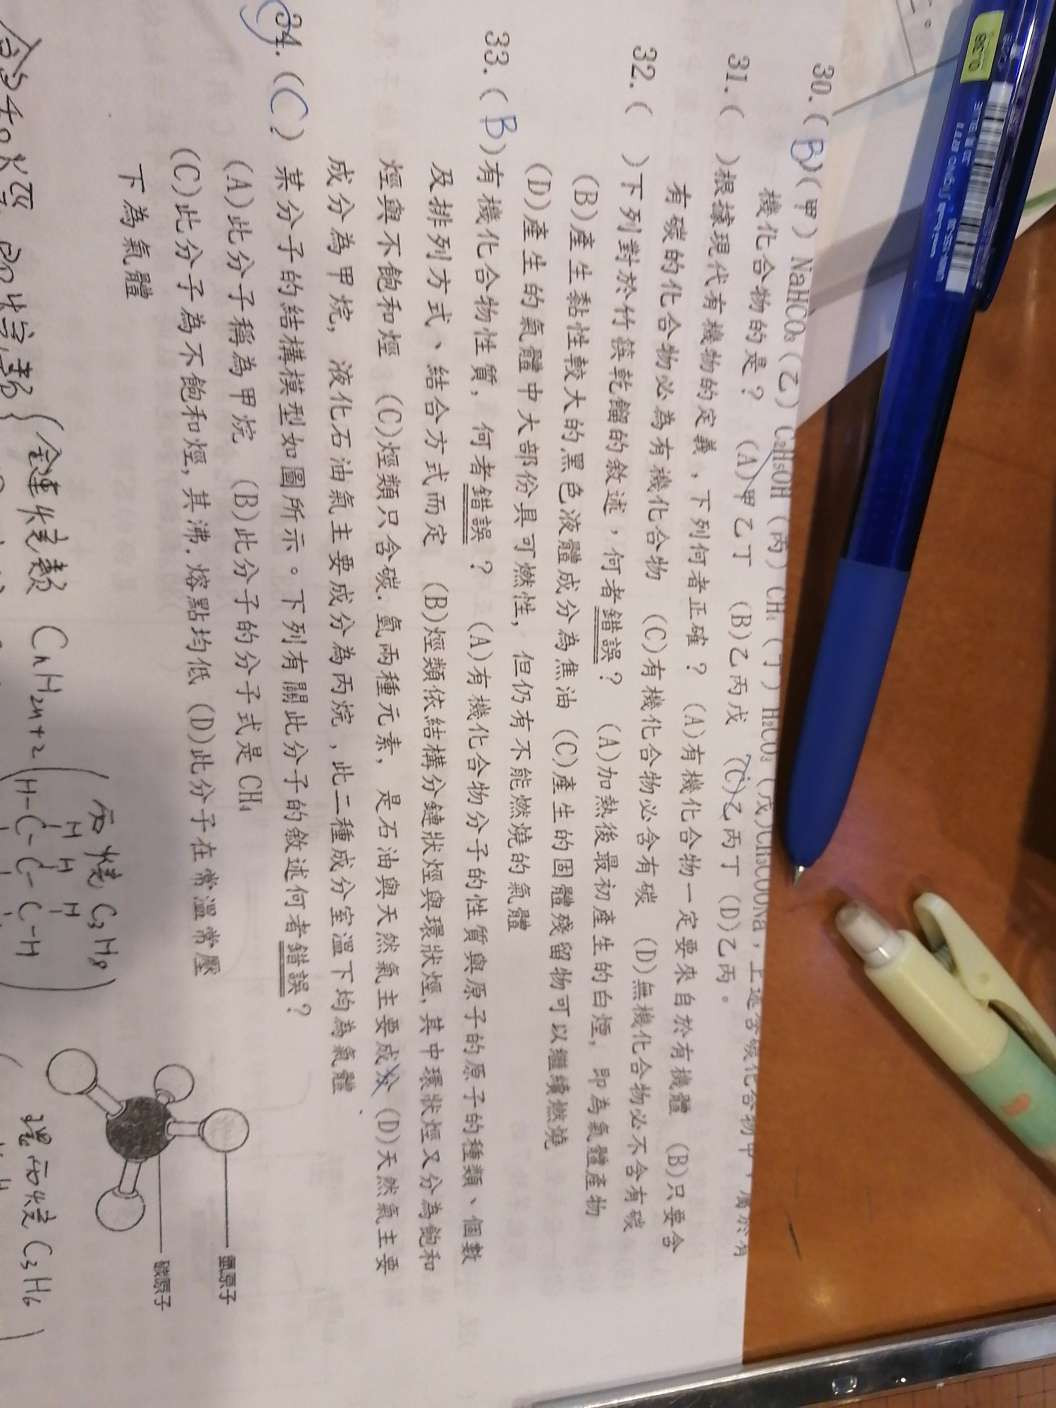 30.( B )(甲) NaHCO₃ (乙) C₂H₅OH (丙) CH₄ (丁) H₂CO₃ (戊)CH₃COONa，上述含碳化合物中，屬於有
機化合物的是？ (A)甲乙丁 (B)乙丙戊 (C)乙丙丁 (D)乙丙。
31.( )根據現代有機物的定義、下列何者正確？ (A)有機化合物一定要來自於有機體 (B)只要含
有碳的化合物必為有機化合物 (C)有機化合物必含有碳 (D)無機化合物必不含有碳
32.( )下列對於竹筷乾餾的敘述，何者錯誤？ (A)加熱後最初產生的白煙，即為氣體產物
(B)產生黏性較大的黑色液體成分為焦油 (C)產生的固體殘留物可以繼續燃燒
(D)產生的氣體中大部份具可燃性，但仍有不能燃燒的氣體
33.( B )有機化合物性質，何者錯誤？ (A)有機化合物分子的性質與原子的原子的種類、個數
及排列方式、結合方式而定 (B)烴類依結構分鏈狀烴與環狀烴，其中環狀烴又分為飽和
烴與不飽和烴 (C)烴類只含碳．氫兩種元素，是石油與天然氣主要成分 (D)天然氣主要
成分為甲烷，液化石油氣主要成分為丙烷，此二種成分室溫下均為氣體．
34.( C ) 某分子的結構模型如圖所示。下列有關此分子的敘述何者錯誤？
(A)此分子稱為甲烷 (B)此分子的分子式是 CH₄
(C)此分子為不飽和烴，其沸．熔點均低 (D)此分子在常溫常壓
下為氣體
氫原子
碳原子
鏈狀烷類 CnH2n+2
丙烷 C₃H₈
H H H
H-C-C-C-H
環丙烷 C₃H₆